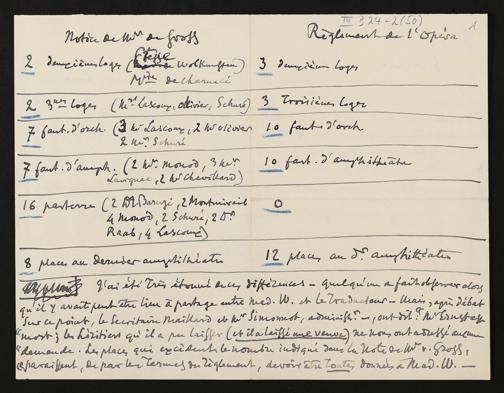 III 324-2(50)
1
Notice de Mr de Gross
Règlement de l'Opéra
2 deuxièmes loges (Ctesse Wolkenstein)
Mise de Charnacé
3 deuxièmes loges
2 3mes loges (Mrs Lascoux, Ollivier, Schuré)
3 Troisièmes loges
7 faut. d'orch. (3 Mr Lascoux, 2 Mr Ollivier
2 Mr Schuré
10 faut d'orch
7 faut. d'amph. (2 Mr. Monod, 3 Mme
2 Mr Chevillard)
10 faut. d'amphithéatre
16 parterre (2
4 Monod, 2 Schuré, 2 Dr
Raab, 4 Lascoux)
0
8 places au dernier amphithéatre
12 places au d. amphithéatre
J'ai été très étonné de ces différences – quelqu'un a fait observer alors
qu'il y avait peut être lieu à partage entre Mad. W. et le traducteur – Mais, après débat
sur ce point, le Secrétaire Mailhard et Mr Simonnot, – ont dit: Mr Ernst est
"mort; les héritiers qu'il a pu laisser (et il a laissé une veuve) ne nous ont adressé aucune
"demande. Les places qui excèdent le nombre indiqué dans la Note de Mr v. Gross,
"paraissent, de par les termes du règlement, devoir être toutes données à Mad. W. —